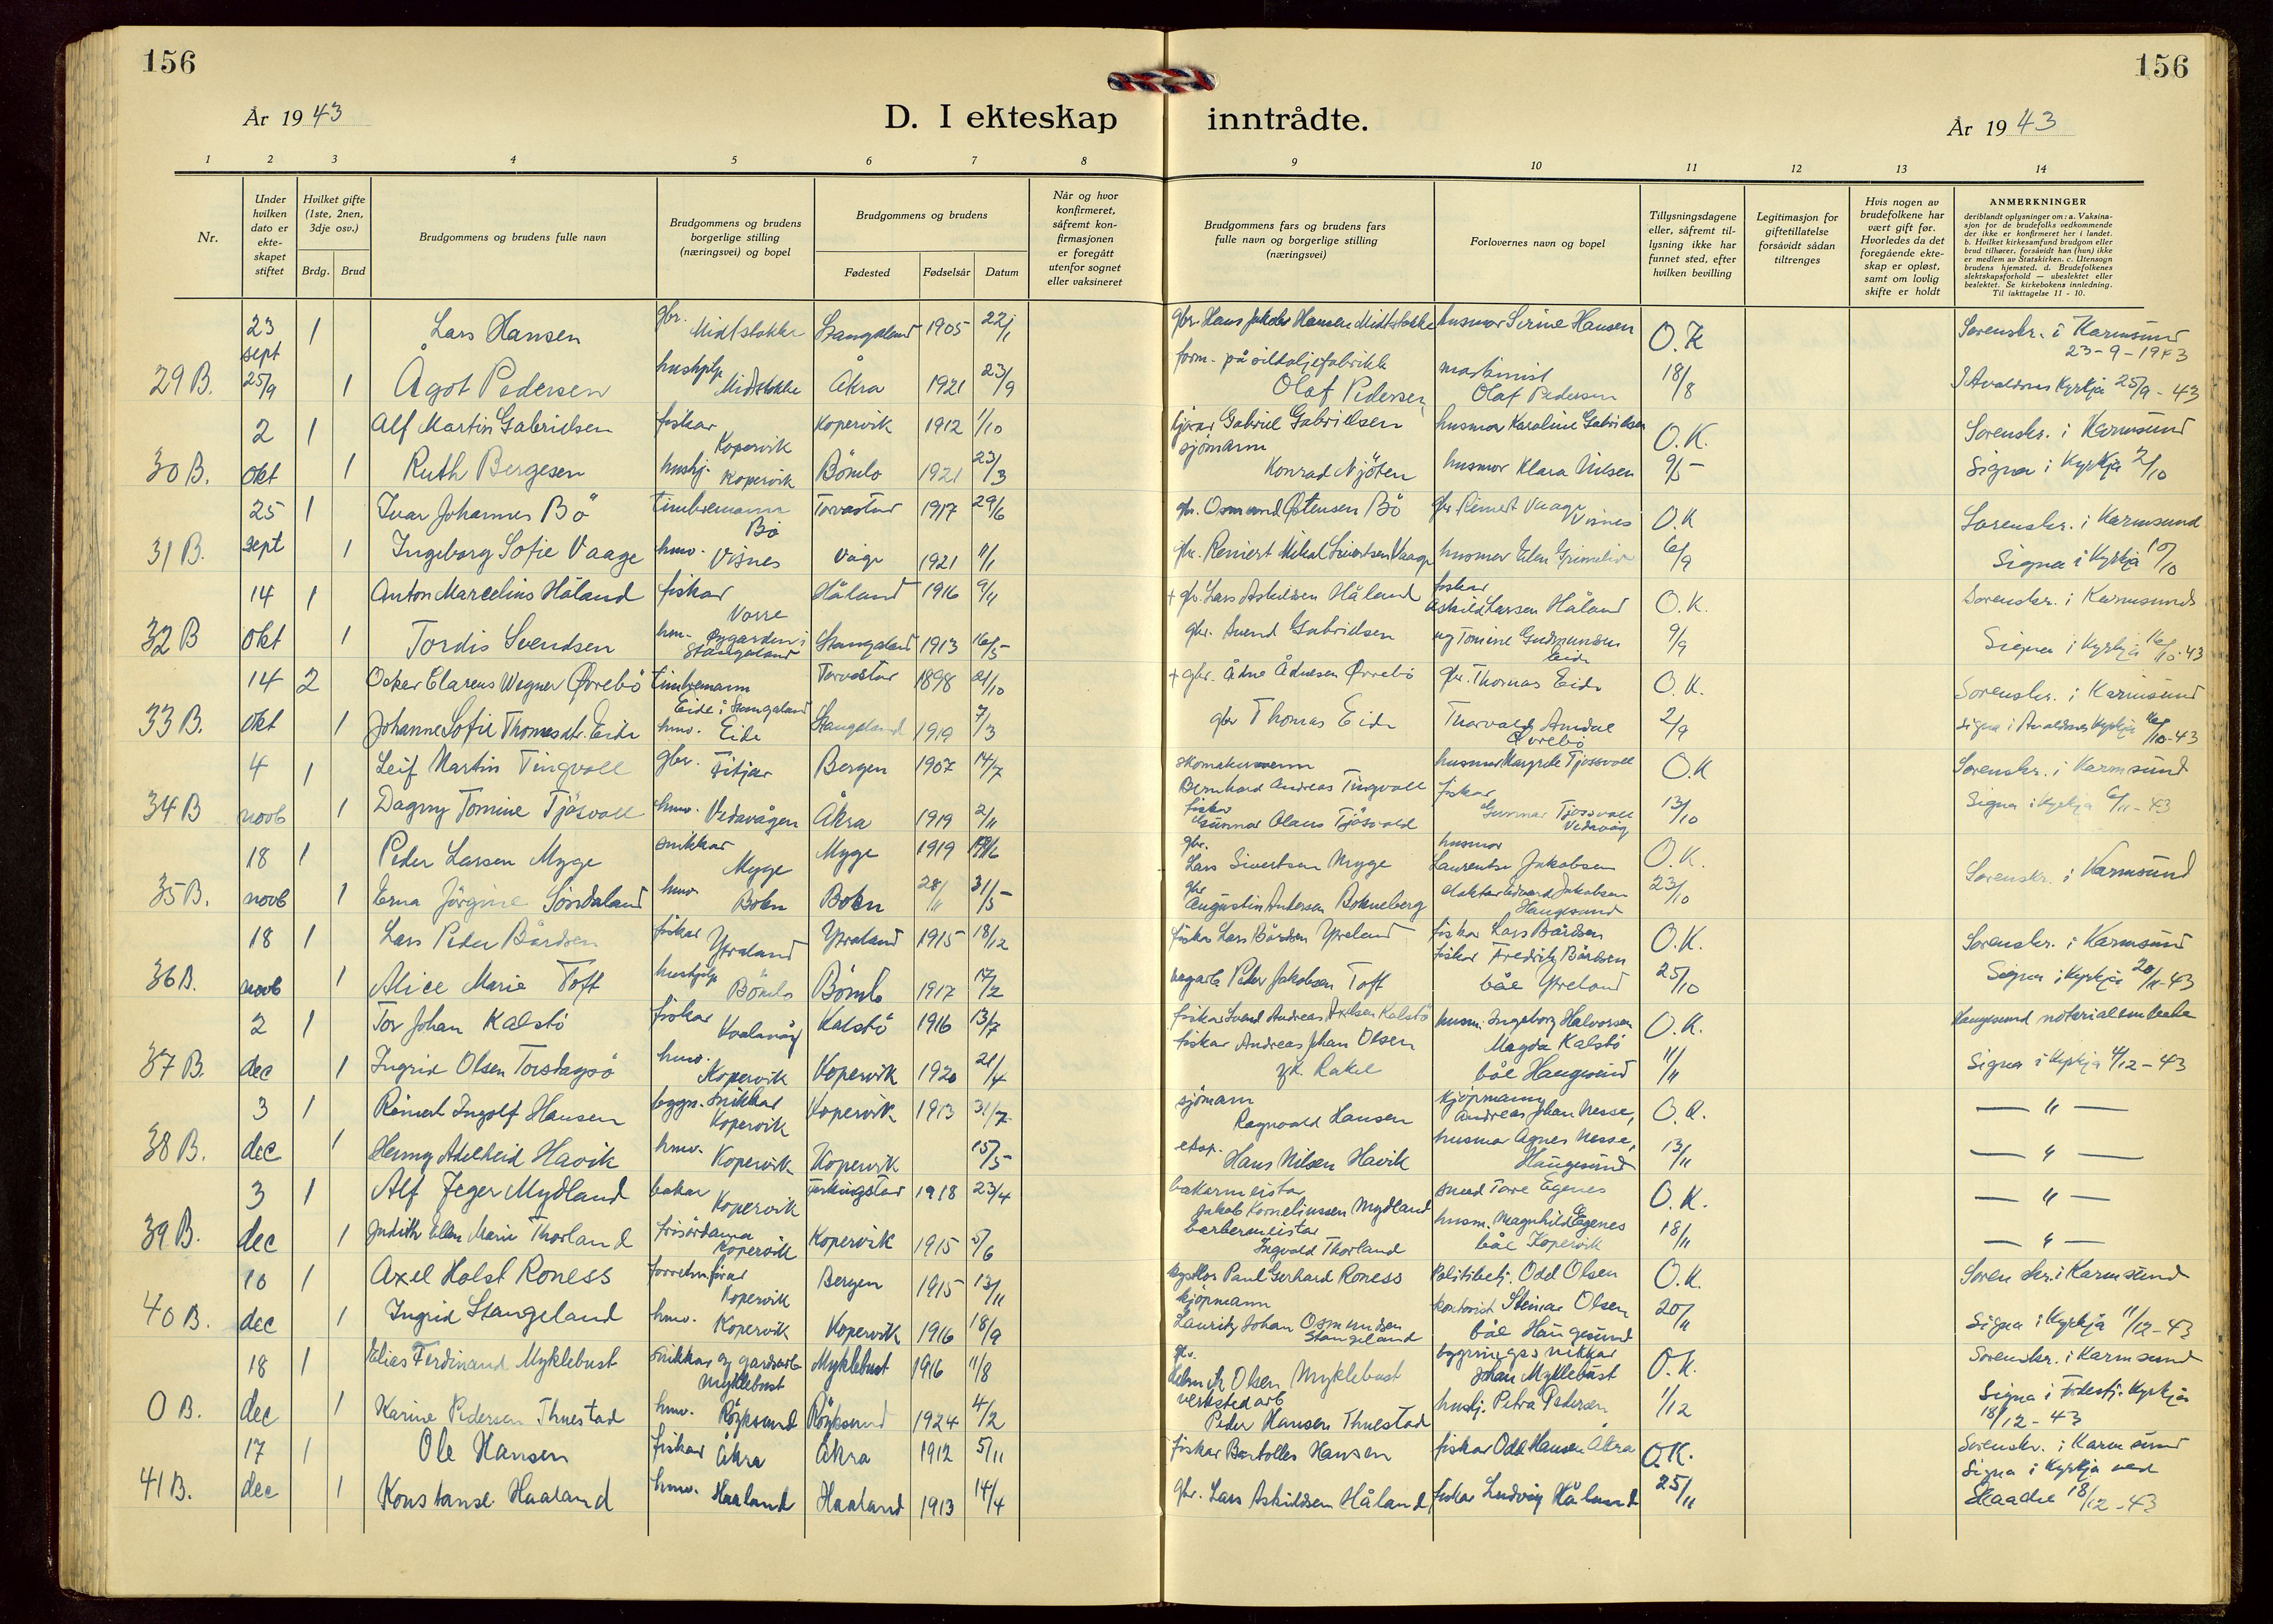 156
156
År 19 43
D. I ekteskap inntrådte.
År 19 43
1 2 3 4 5 6 7 8 9 10 11 12 13 14
Nr.
Under hvilken dato er ekte-skapet stiftet
Hvilket gifte (1ste, 2nen, 3dje osv.)
Brdg. Brud
Brudgommens og brudens fulle navn
Brudgommens og brudens borgerlige stilling (næringsvei) og bopel
Brudgommens og brudens
Fødested Fødselsår Datum
Når og hvor konfirmeret, såfremt kon-firmasjonen er foregått utenfor sognet eller vaksineret
Brudgommens fars og brudens fars fulle navn og borgerlige stilling (næringsvei)
Forlovernes navn og bopel
Tillysningsdagene eller, såfremt til-lysning ikke har funnet sted, efter hvilken bevilling
Legitimasjon for giftetillatelse forsåvidt sådan tiltrenges
Hvis nogen av brudefolkene har vært gift før. Hvorledes da det foregående ekte-skap er opløst, samt om lovlig skifte er holdt
ANMERKNINGER
deriblandt oplysninger om: a. Vaksina-sjon for de brudefolks vedkommende der ikke er konfirmeret her i landet. b. Hvilket kirkesamfund brudgom eller brud tilhører, forsåvidt han (hun) ikke er medlem av Statskirken. c. Utensogn brudens hjemsted. d. Brudefolkenes slektskapsforhold — ubeslektet eller beslektet. Se kirkebokens innledning. Til iakttagelse 11 - 10.
23 sept 1 Lars Hansen gbr. Midtstokke Stangeland 1905 22/1 gbr. Hans Jakob Hansen Midtstokke husmor Serine Hansen O.K Sorenskr. i Karmsund 23-9-1943
29 B. 25/9 1 Ågot Pedersen hushjelp Midtstokke Åkra 1921 23/9 form. på sildoljefabrikk Olaf Pedersen maskinist Olaf Pedersen 18/8 I Avaldsnes Kyrkja 25/9-43
2 1 Alf Martin Gabrielsen fiskar Kopervik Kopervik 1912 1/10 Gabriel Gabrielsen husmor Karoline Gabrielsen O.K. Sorenskr. i Karmsund
30 B. okt 1 Ruth Bergesen hushj. Kopervik Bömlo 1921 23/3 sjömann Konrad Njöten husmor Klara Nilsen 9/5 Signa i Kyrkja 2/10
25 1 Ivar Johannes Bö timbremann Bö Torvastad 1917 29/6 gbr. Osmund Østensen Bö gbr Reinert Vaage Visnes O.K Sorenskr. i Karmsund
31 B. sept 1 Ingeborg Sofie Vaage hmv. Visnes Våge 1921 11/1 gbr. Reniert Mikal Sivertsen Vaage husmor Elen 6/9 Signa i Kyrkja 10/10
14 1 Anton Marcelius Håland fiskar Vorre Håland 1916 9/11 + gbr. Lars Askildsen Håland fiskar Askild Larsen Håland O.K. Sorenskr. i Karmsund
32 B okt 1 Tordis Svendsen hm. Øygarden i Stangeland Stangeland 1913 16/5 gbr. Svend Gabrielsen og Tomine Gudmundsen Eide 9/9 Signa i Kyrkja 16/10-43
14 2 Oskar Clarens Wegner Øvrebö timbremann Eide i Stangeland Torvastad 1898 21/10 + gbr. Ådne Ådnesen Øvrebö gbr. Thomas Eide O.K. Sorenskr. i Karmsund
33 B. okt 1 Johanne Sofie Thomasdtr. Eide hmv. Eide Stangeland 1919 7/3 gbr Thomas Eide Torvald Amdal Øvrebö 2/9 Signa i Avaldsnes Kyrkja 16/10-43
4 1 Leif Martin Tingvoll gbr. Fitjar Bergen 1907 14/7 Bernhard Andreas Tingvoll husmor Margrete Tjossvoll O.K Sorenskr. i Karmsund
34 B novb 1 Dagny Tomine Tjösvoll hmv. Vedavågen Åkra 1919 2/11 fiskar Gunnar Olaus Tjösvold fiskar Gunnar Tjossvoll Vedavåg 13/10 Signa i Kyrkja 6/11-43
18 1 Peder Larsen Myge snikkar Myge Myge 1919 gbr. Lars Sivertsen Myge husmor Laurentse Jakobsen O.K. Sorenskr. i Karmsund
35 B. novb 1 Erna Jörgine Söndaland hmv. Bokn Bokn 28/11 31/5 gbr Augustin Andersen Bokneberg Edvard Jakobsen Haugesund 23/10
18 1 Lars Peder Bårdsen fiskar Ytreland Ytreland 1915 18/12 fiskar Lars Bårdsen Ytreland fiskar Lars Bårdsen O.K. Sorenskr. i Karmsund
36 B. novb 1 Alice Marie Toft hushjelp Bömlo Bömlo 1917 17/2 vegarb Peder Jakobsen Toft fiskar Fredrik Bårdsen båe Ytreland 25/10 Signa i Kyrkja 20/11-43
2 1 Tor Johan Kalstö fiskar Kvalavåg Kalstö 1916 13/7 fiskar Svend Andreas Axelsen Kalstö husm. Ingeborg Halvorsen O.K. Haugesund notarialembete
37 B. dec 1 Ingrid Olsen Torsdagsö hmv. Kopervik Kopervik 1920 21/4 fiskar Andreas Johan Olsen Magda Kalstö båe Haugesund 11/11 Signa i Kyrkja 4/12-43
3 1 Reinert Ingolf Hansen byggn. snikkar Kopervik Kopervik 1913 31/7 sjömann Ragnvald Hansen kjöpmann Andreas Johan Nesse, O.K. — " —
38 B. dec 1 Henny Adelheid Havik hmv. Kopervik Kopervik 15/5 eksp. Hans Nilsen Havik husmor Agnes Nesse, Haugesund 13/11 — " —
3 1 Alf Jeger Mydland bakar Kopervik Ferkingstad 1918 23/4 bakarmeistar Jakob Korneliussen Mydland Tore Egenes O.K. — " —
39 B. dec 1 Judith Ellen Marie Thorland frisördama Kopervik Kopervik 1915 5/6 barbermeistar Ingvald Thorland husm. Magnhild Egenes båe Kopervik 18/11 — " —
10 1 Axel Holst Roness Kopervik Bergen 1915 13/11 Paul Gerhard Roness Politibetj. Odd Olsen O.K. Soren skr. i Karmsund
40 B. dec 1 Ingrid Stangeland hmv. Kopervik Kopervik 1916 18/9 kjöpmann Lauritz Johan Osmundsen Stangeland kontorist Steinar Olsen båe Haugesund 20/11 Signa i Kyrkja 11/12-43
18 1 Elias Ferdinand Myklebust snikkar og gardsarb Myklebust Myklebust 1916 11/8 gbr. Helmik Olsen Myklebust bygningssnikkar Johan Myklebust O.K. Sorenskr. i Karmsund
0 B. dec 1 Karine Pedersen Thuestad hmv. Röyksund Röyksund 1924 4/2 verkstedarb Peder Hansen Thuestad hushj. Petra Pedersen 1/12 Signa i Kyrkja 18/12-43
17 1 Ole Hansen fiskar Åkra Åkra 1912 5/11 fiskar Bertolles Hansen fiskar Odd Hansen Åkra O.K. Sorenskr. i Karmsund
41 B. dec 1 Konstanse Haaland hmv. Haaland Haaland 1913 14/4 gbr. Lars Askildsen Håland fiskar Ludvig Håland 25/11 Signa i Kyrkja ved Skaadel 18/12-43